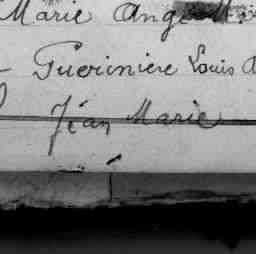 Marie Ange M.
Guerinière Louis
Jéan Marie